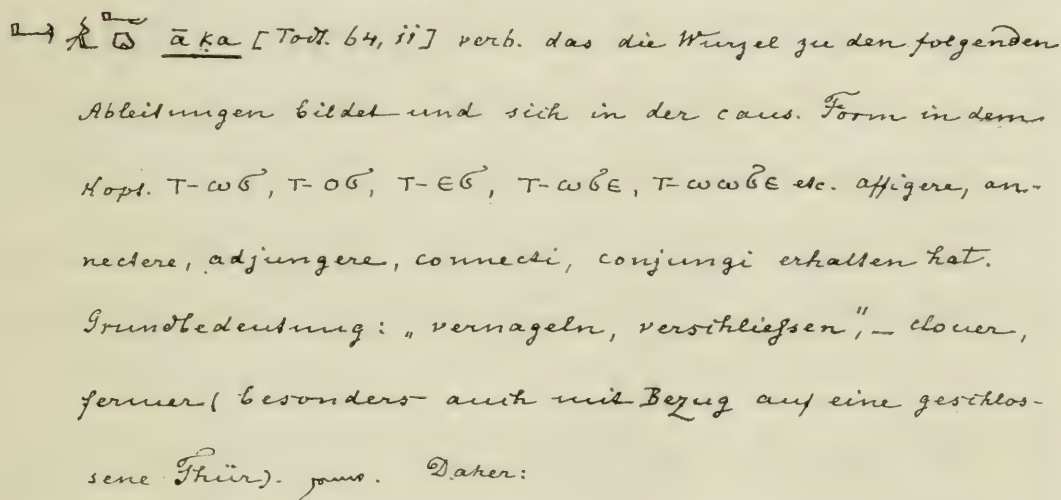 āḳa [Todt. 64, ii] verb. das die Wurzel zu den folgenden
Ableitungen bildet und sich in der caus. Form in dem
Kopt. ⲧ-ⲱϭ, ⲧ-ⲟϭ, ⲧ-ⲉϭ, ⲧ-ⲱϭⲉ, ⲧ-ⲱⲱϭⲉ etc. affigere, an-
nectere, adjungere, connecti, conjungi erhalten hat.
Grundbedeutung: „vernageln, verschließen", – clouer,
fermer (besonders auch mit Bezug auf eine geschlos-
sene Thür). Daher: